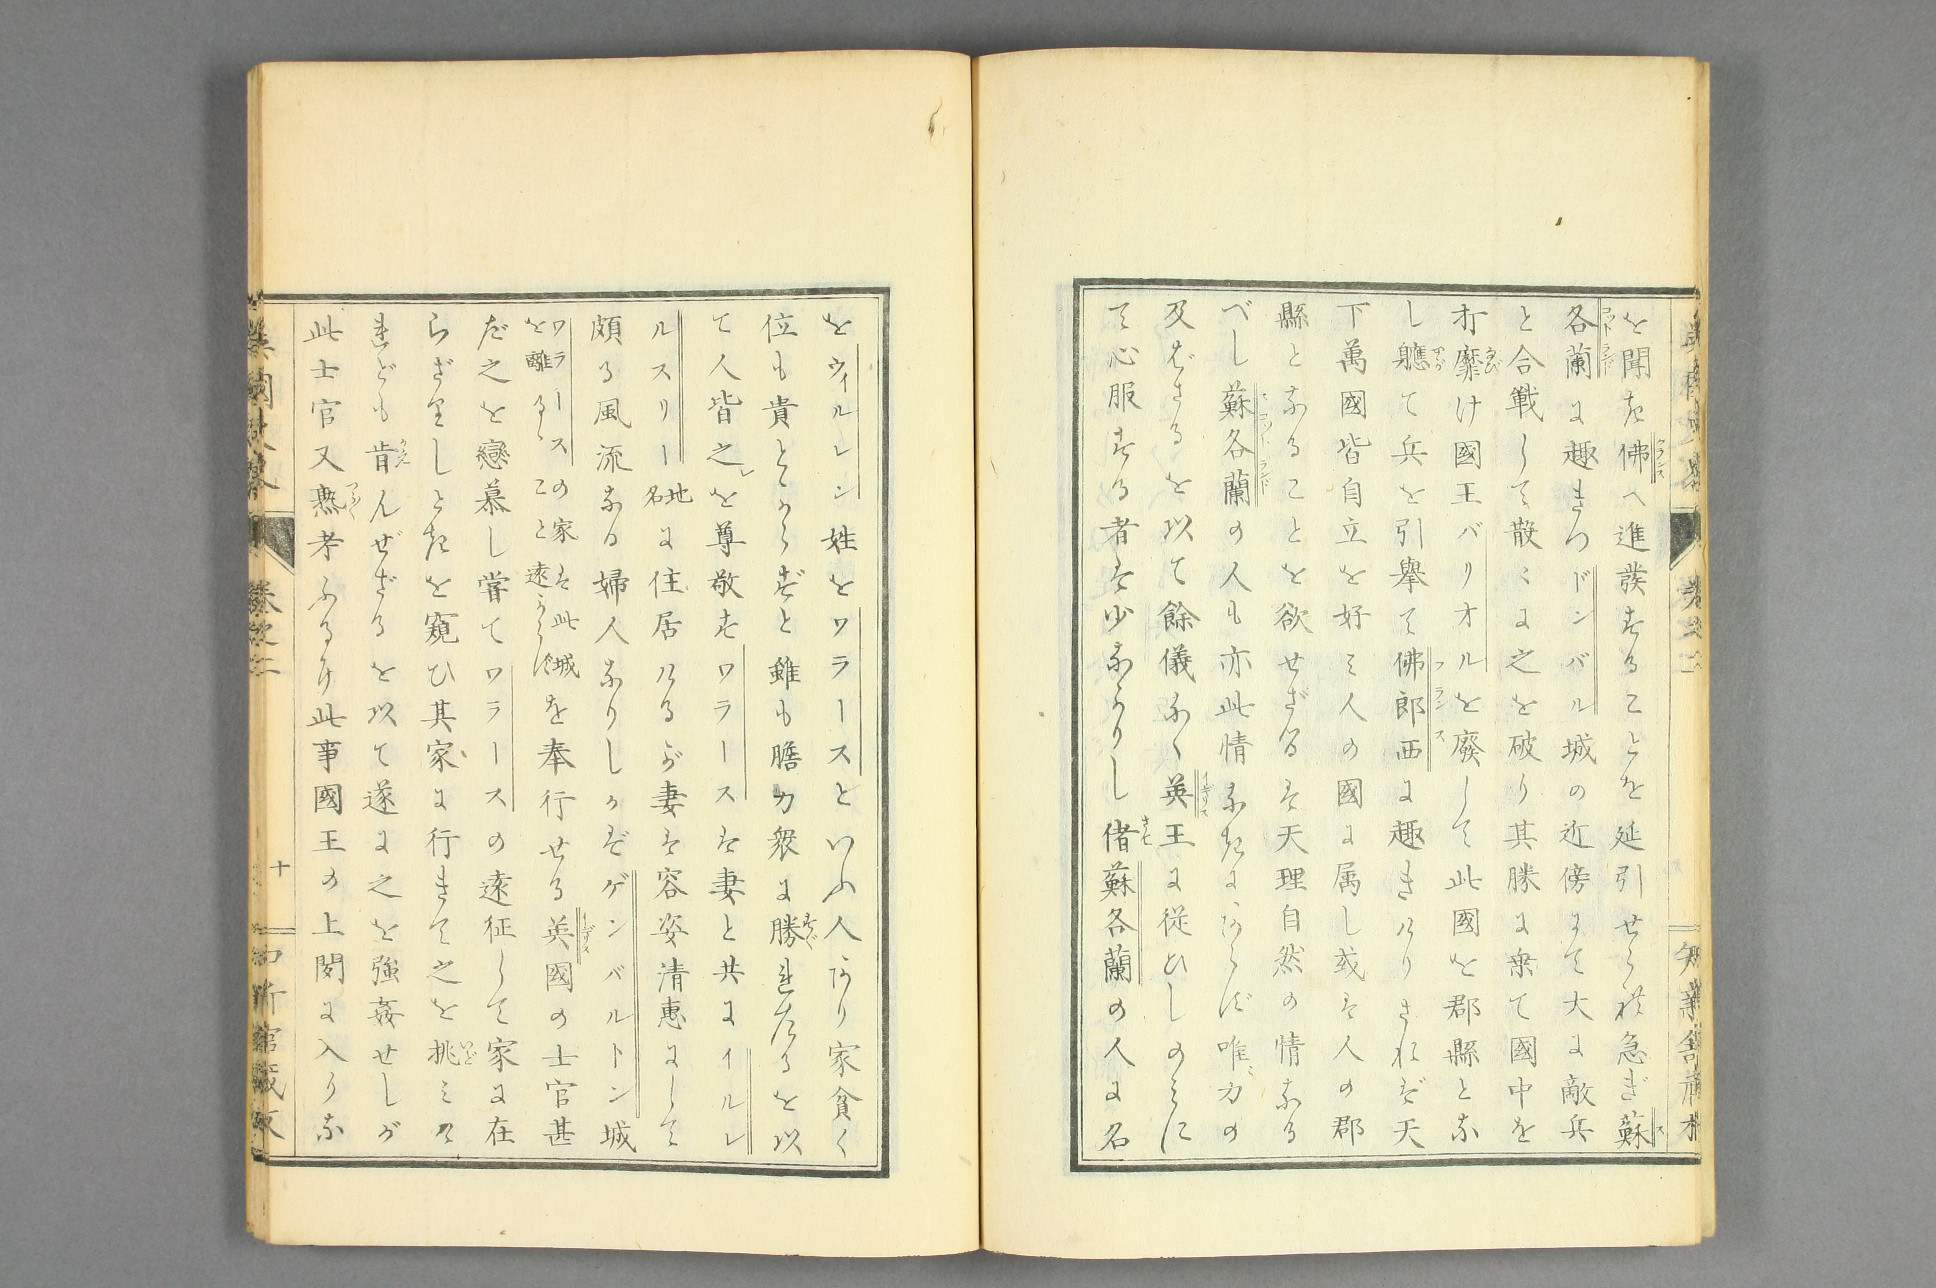 を聞き佛へ進發することを延引せられ急ぎ蘇
各蘭に趣きつドンバル城の近傍にて大に敵兵
と合戰して散々に之を破り其勝に乘て國中を
打靡け國王バリオルを廢して此國を郡縣とな
し軈て兵を引擧て佛郎西に趣きけりされば天
下萬國皆自立を好み人の國に属し或は人の郡
縣となることを欲せざるは天理自然の情なる
べし蘇各蘭の人も亦此情なきにあらず唯力の
及ばざるを以て餘儀なく英王に従ひしのみに
て心服する者は少なかりし偖蘇各蘭の人に名
をウィルレン姓をワラースといふ人あり家貧く
位も貴とからずと雖も膽力衆に勝れたるを以
て人皆之を尊敬すワラースは妻と共にイルレ
ルスリー地名に住居けるが妻は容姿清惠にして
頗る風流なる婦人なりしかばゲンバルトン城
ワラースの家は此城を離るゝこと遠からずを奉行せる英國の士官甚
だ之を戀慕し嘗てワラースの遠征して家に在
らざりしときを窺ひ其家に行きて之を挑みけ
れども肯んぜざるを以て遂に之を強姦せしが
此士官又熟考ふるに此事國王の上聞に入りな
英國史畧
卷之二
十
知新館藏板